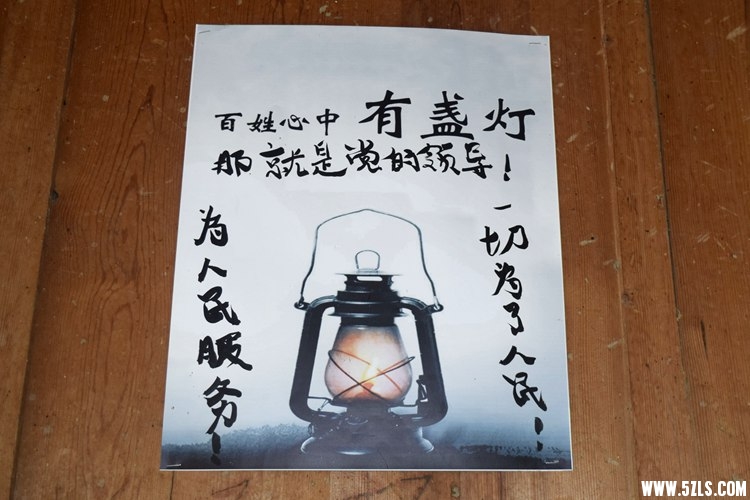 百姓心中有盏灯
那就是党的领导！
一切为了人民！
为人民服务！
WWW.5ZLS.COM